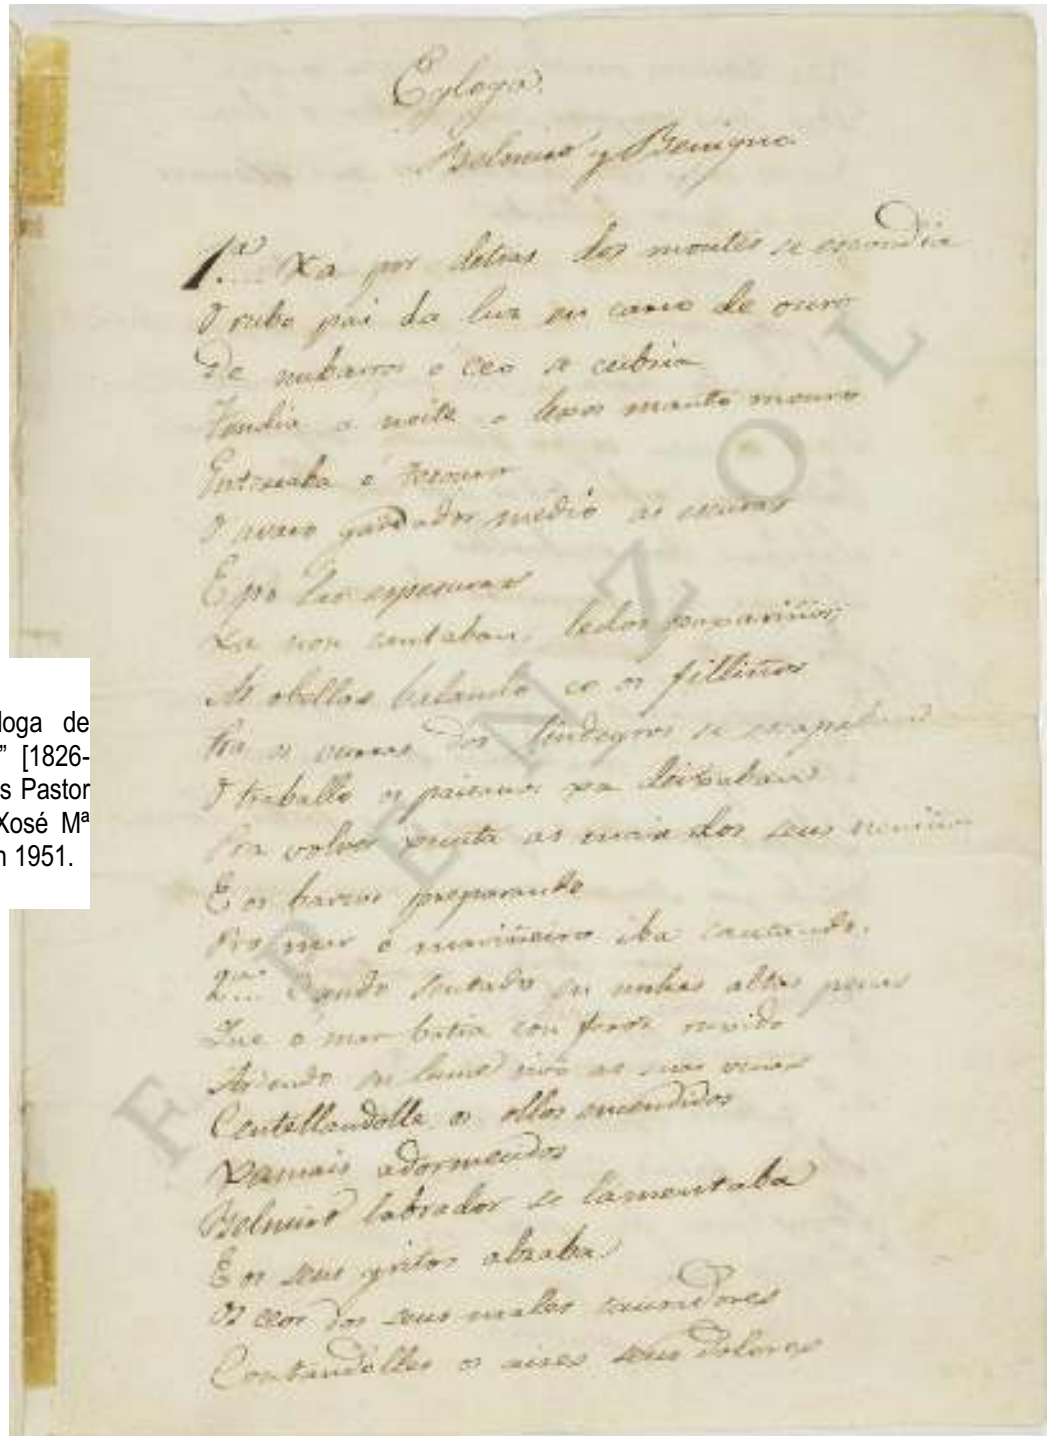 Egloga.
Belmiro y Benigno.
1.ª... Xa por detras dos montes se escondia
O rubo pai da luz en carro de ouro
De nubarros o ceo se cubria
Tendia a noite o manto mouro
Enterraba o tesouro
O avaro gardador medio as escuras
E po las espesuras
Xa non cantaban ledos paxariños
As obellas balando co os filliños
se escapaban
O traballo os paisanos xa deixaban
Pra volver xunta as mais dos seus neniños
E os barcos preparando
Pro mar o mariñeiro iba cantando.
2.ª... Cando sentado en unhas altas penas
Que o mar batia con feroz ruxido
Ardendo en lume vivo as suas venas
Centellandolle os ollos encendidos
Xamais adormecidos
Belmiro labrador se lamentaba
E os seus gritos alzaba
Os ceos dos seus males causadores
Contandolles os aires seus dolores
loga de
” [1826-
s Pastor
Xosé Mª
n 1951.
F P E N Z O L